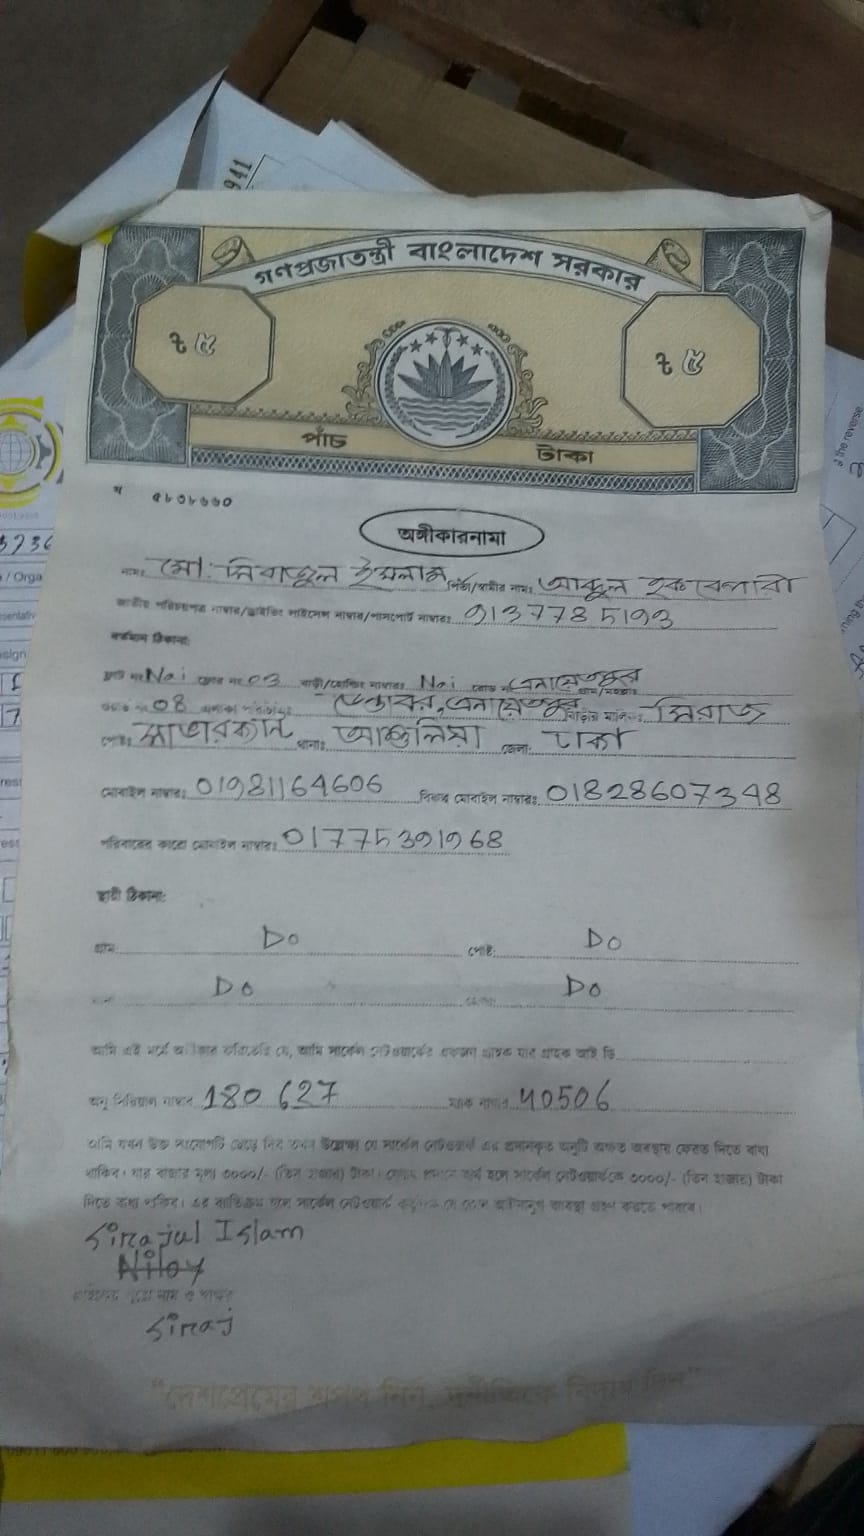 গণপ্রজাতন্ত্রী বাংলাদেশ সরকার
৳ ৫ ৳ ৫
পাঁচ টাকা
অঙ্গীকারনামা
নামঃ মো: সিরাজুল ইসলাম পিতা/স্বামীর নামঃ আব্দুল হক বেপারী
জাতীয় পরিচয়পত্র নাম্বার/ড্রাইভিং লাইসেন্স নাম্বার/পাসপোর্ট নাম্বারঃ 9137785193
বর্তমান ঠিকানা:
ফ্ল্যাট নং Nai ফ্লোর নং 03 বাড়ী/হোল্ডিং নাম্বারঃ Nai রোড নং এনায়েতপুর গ্রাম/মহল্লাঃ
ওয়ার্ড নং 08 এলাকা এনায়েতপুর বাড়ির মালিকঃ সিরাজ
পোষ্টঃ থানাঃ আশুলিয়া জেলা: ঢাকা
মোবাইল নাম্বারঃ 01981164606 বিকাশ মোবাইল নাম্বারঃ 01828607348
পরিবারের কারো মোবাইল নাম্বারঃ 01775391968
স্থায়ী ঠিকানা:
গ্রাম: Do পোষ্ট: Do
Do Do
আমি এই মর্মে অঙ্গিকার করিতেছি যে, আমি সার্কেল নেটওয়ার্কের একজন গ্রাহক যার গ্রাহক আই ডি
অনু সিরিয়াল নাম্বার 180627 ম্যাক নাম্বার 40506
আমি যখন উক্ত সংযোগটি ছেড়ে দিব তখন উল্লেখ্য যে সার্কেল নেটওয়ার্ক এর প্রদানকৃত অনুটি অক্ষত অবস্থায় ফেরত দিতে বাধ্য
থাকিব। যার বাজার মূল্য ৩০০০/- (তিন হাজার) টাকা। ফেরত প্রদানে ব্যর্থ হলে সার্কেল নেটওয়ার্ককে ৩০০০/- (তিন হাজার) টাকা
দিতে বাধ্য থাকিব। এর ব্যতিক্রম হলে সার্কেল নেটওয়ার্ক কর্তৃপক্ষ যে কোন আইনানুগ ব্যবস্থা গ্রহণ করতে পারবে।
Sirajul Islam
Niloy
Siraj
"দেশপ্রেমের শপথ নিন, দুর্নীতিকে বিদায় দিন"